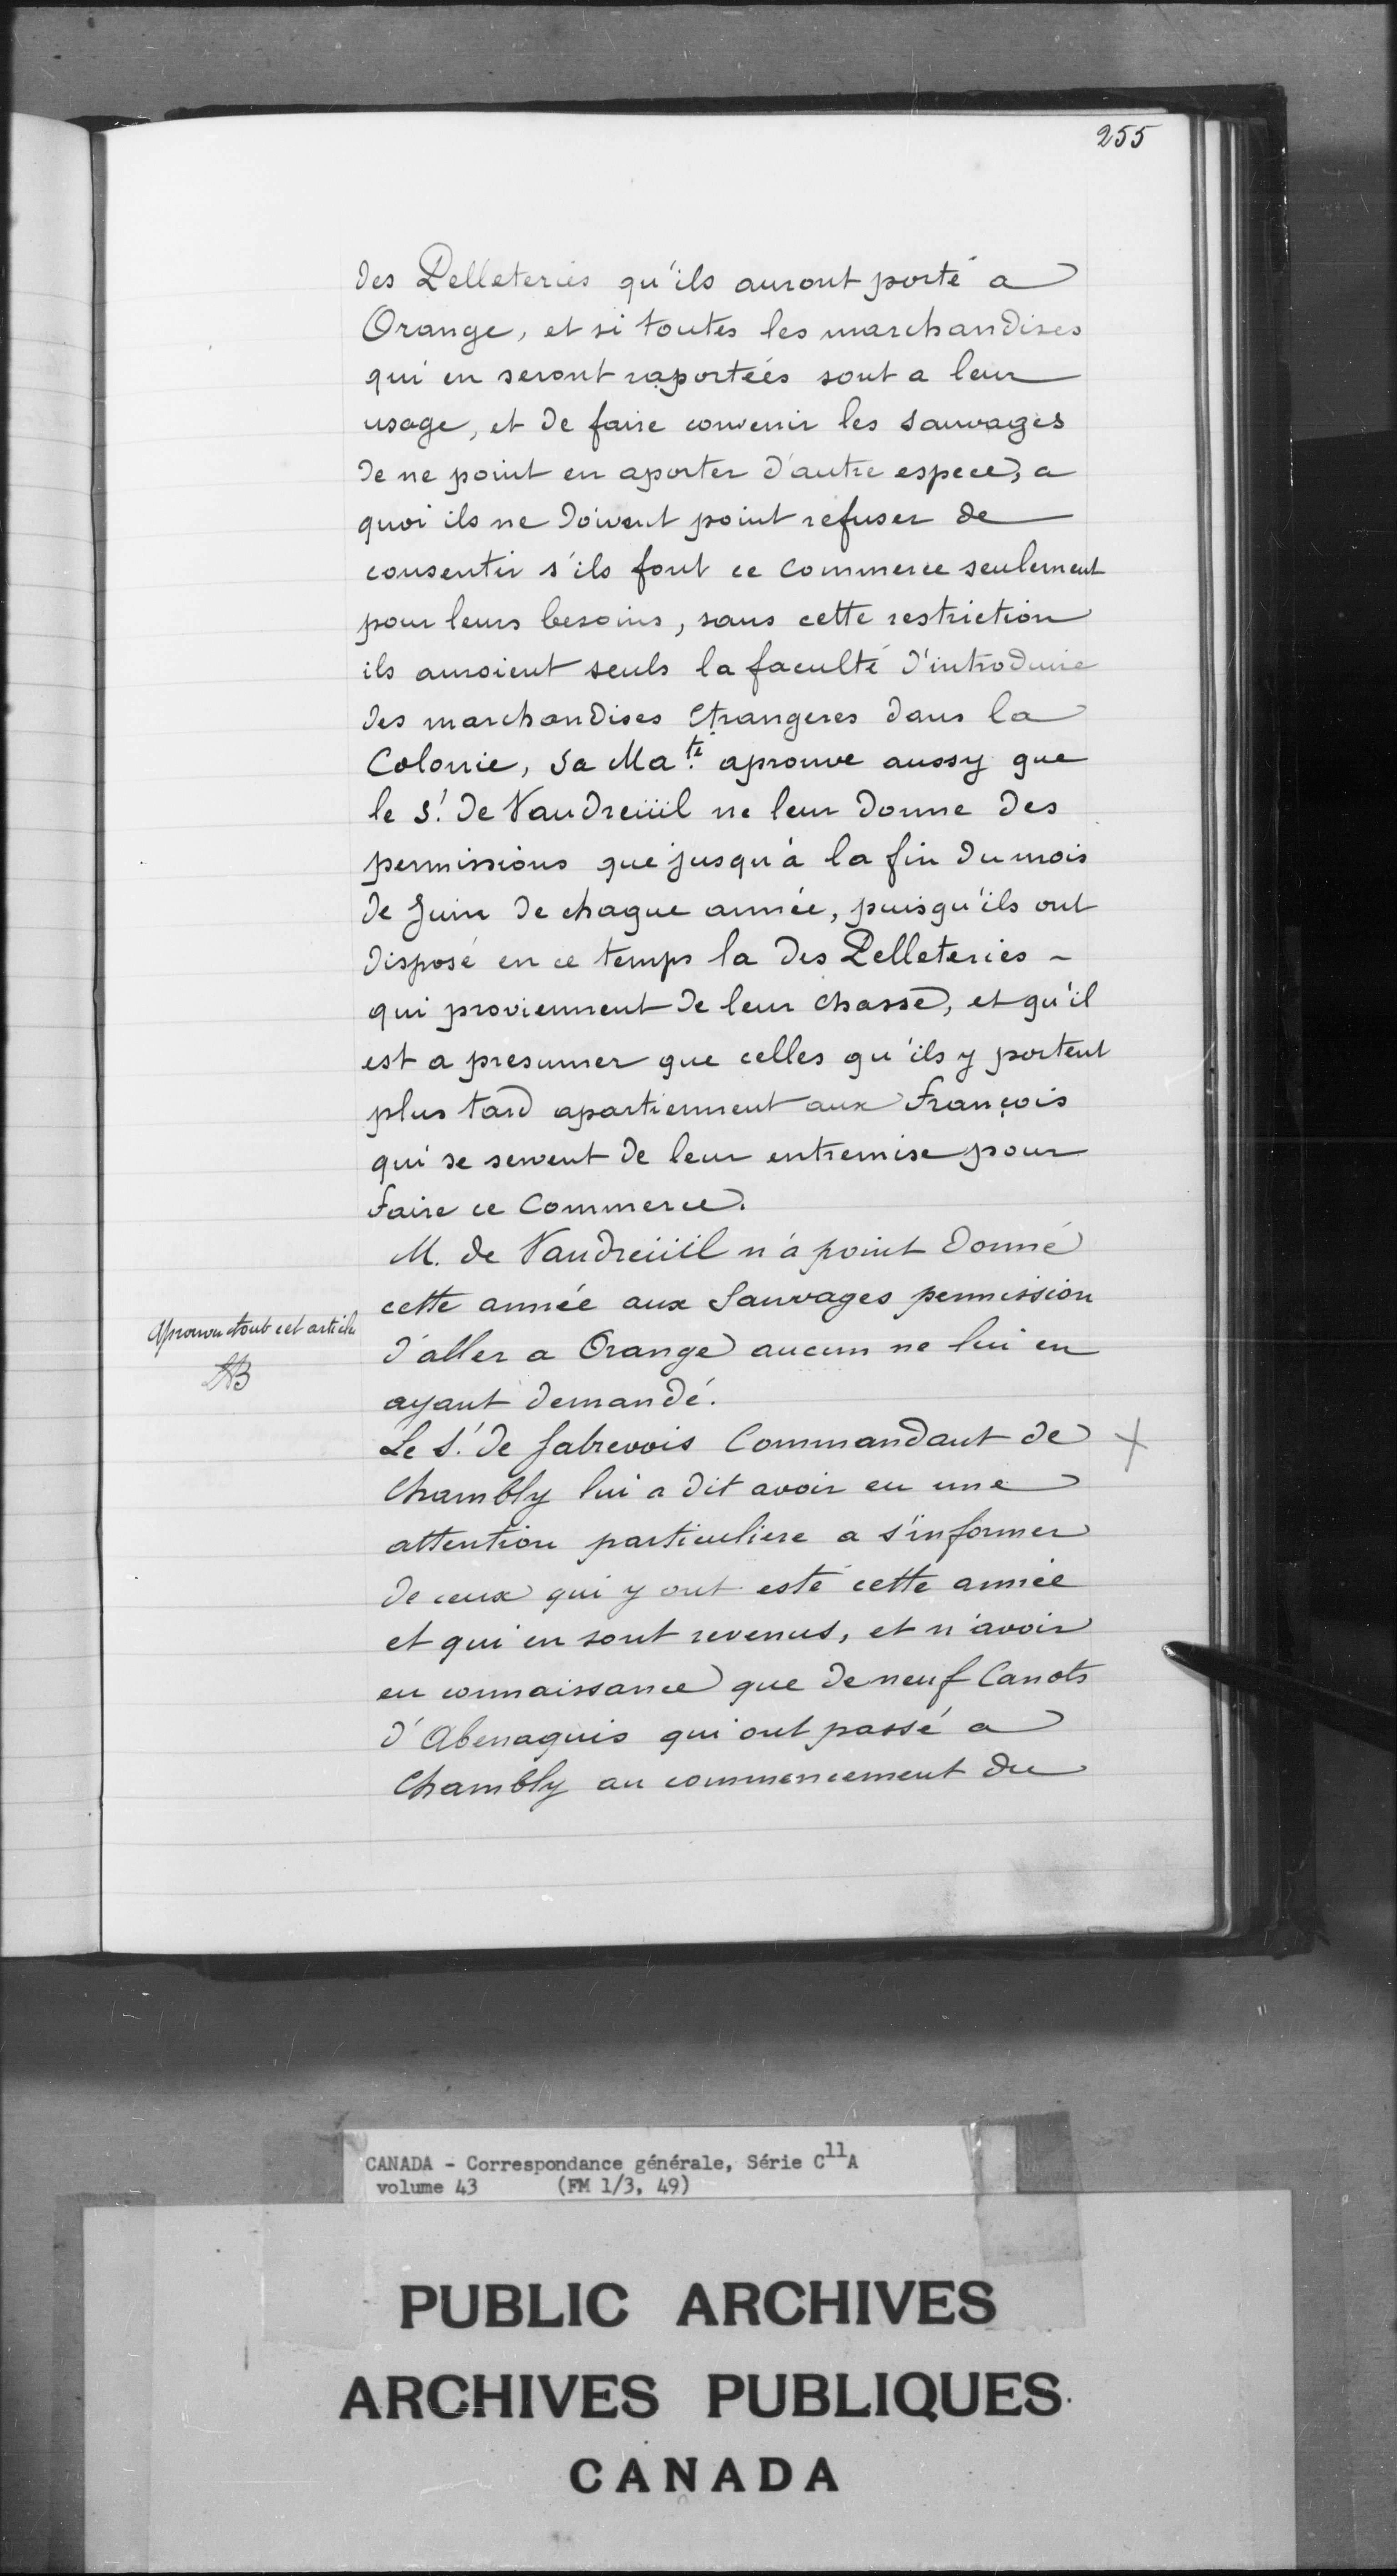 255
des Pelleteries qu'ils auront porté a
Orange, et si toutes les marchandises
qui en seront raportéés sont a leur
usage, et de faire convenir les sauvages
de ne point en aporter d'autre espece, a
quoi ils ne doivent point refuser de
consentir s'ils font ce commerce seulement
pour leurs besoins, sans cette restriction
ils auroient seuls la faculté d'introduire
des marchandises Etrangeres dans la
Colonie, Sa Ma.té aprouve aussy que
le S.r de Vaudreüil ne leur donne des
permissions que jusqu'à la fin du mois
de Juin de chaque année, puisqu'ils ont
disposé en ce temps la des Pelleteries -
qui proviennent de leur chasse, et qu'il
est a presumer que celles qu'ils y portent
plus tard apartiennent aux François
qui se servent de leur entremise pour
faire ce Commerce.
M. de Vaudreüil n'a point donné
cette année aux Sauvages permission
Aprouvé tout cet article
d'aller a Orange aucun ne lui en
LAB
ayant demandé.
Le S.r de Sabrevois Commandant de X
Chambly lui a dit avoir eu une
attention particuliere a s'informer
de ceux qui y ont esté cette année
et qui en sont revenus, et n'avoir
eu connaissance que de neuf Canots
d'Abenaquis qui ont passé a
Chambly au commencement du
CANADA - Correspondance générale, Série C11A
volume 43 (FM 1/3, 49)
PUBLIC ARCHIVES
ARCHIVES PUBLIQUES
CANADA